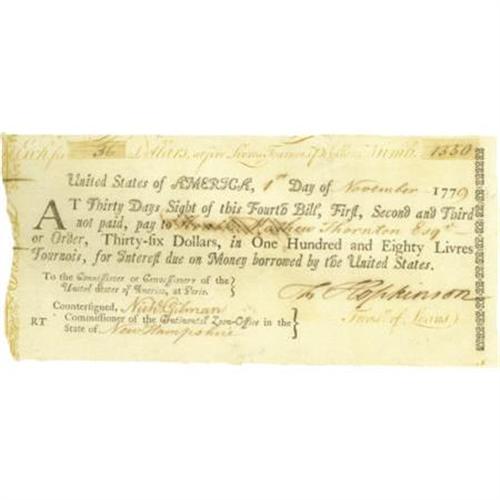 Exch. for 36 Dollars, at five Livres Tournois Numb. 1550
United States of AMERICA, 1st Day of November 1779
AT Thirty Days Sight of this Fourth Bill, First, Second and Third
not paid, pay to Mathew Thornton Esqr
or Order, Thirty-six Dollars, in One Hundred and Eighty Livres
Tournois, for Interest due on Money borrowed by the United States.
To the Commissioner or Commissioners of the
United States of America, at Paris.
Fs Hopkinson
Countersigned, Nichs Gilman
Treasr of Loans
RT Commissioner of the Continental Loan-Office in the
State of New Hampshire